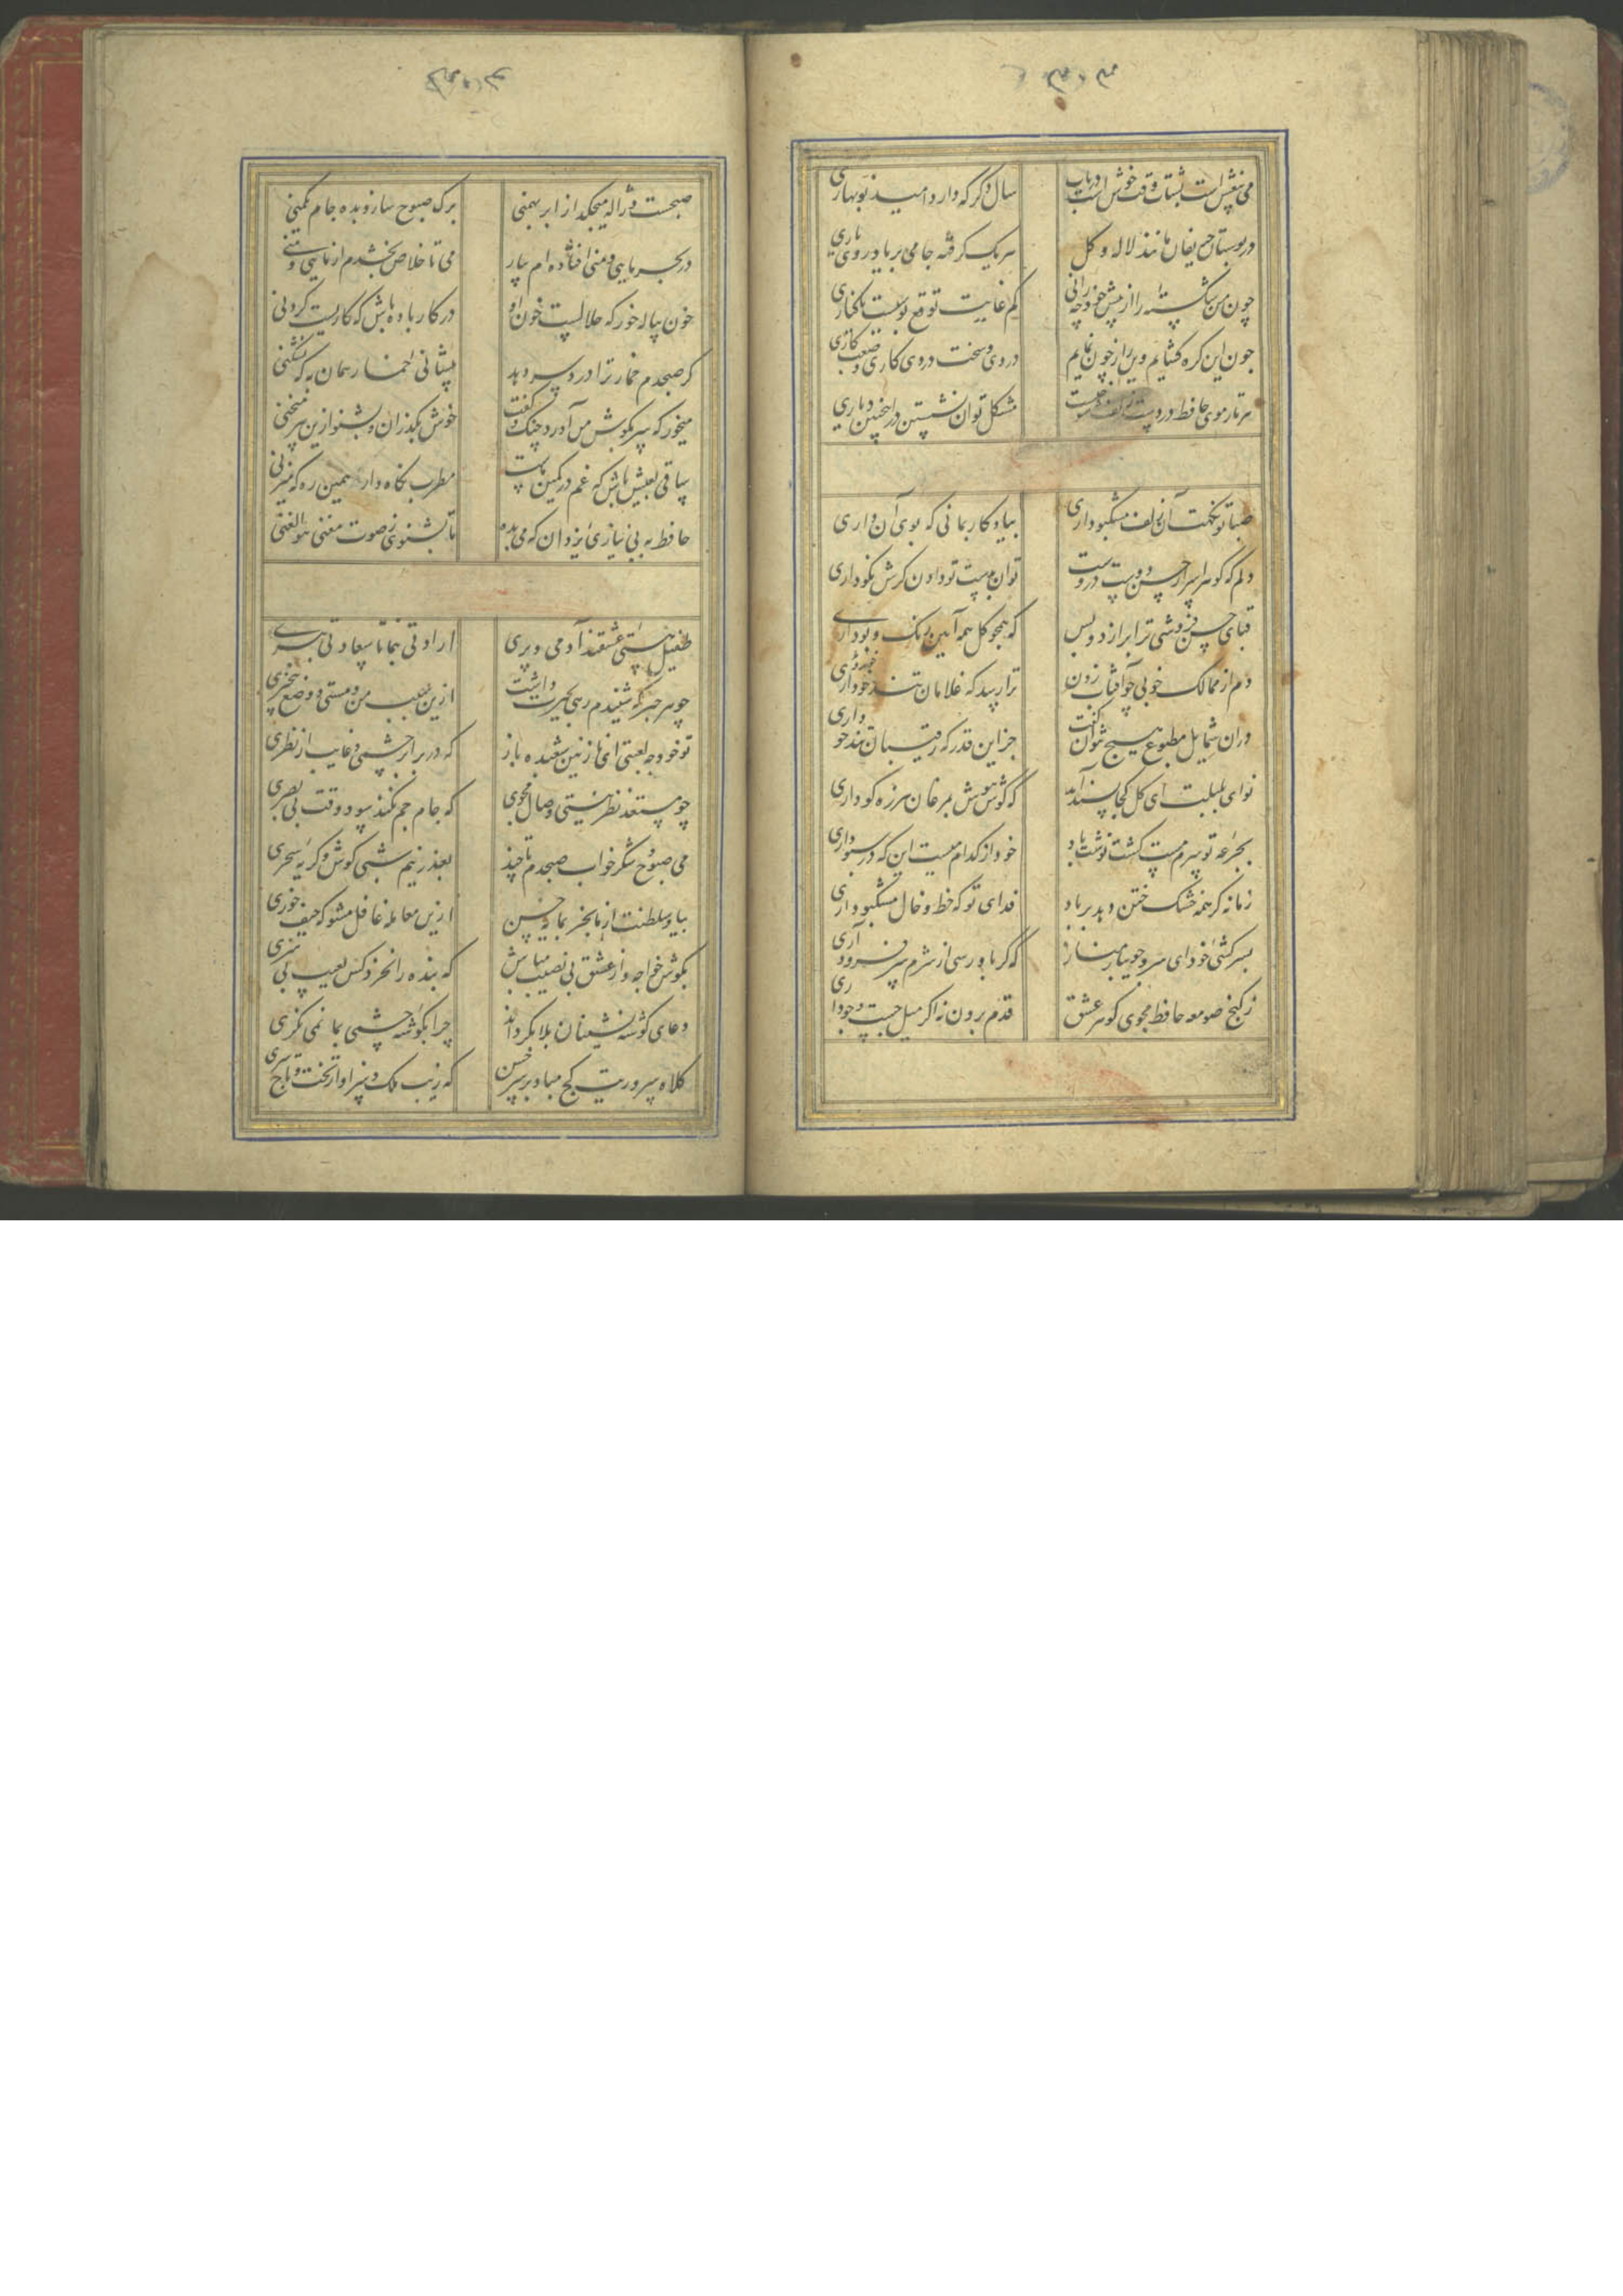 می بیغش است بشتاب وقت خوش است دریاب
سال دگر که دارد امید نوبهاری
در بوستان حریفان مانند لاله و کل
هر یک گرفته جامی بر یاد روی یاری
چون من شکسته را از پیش خود چه رانی
کم غایت توقع بوسیست یا کناری
چون این گره گشایم وین راز چون نمایم
دردی و سخت دردی کاری و صعب کاری
هر تار موی حافظ در دست زلف شوخیست
مشکل توان نشستن در اینچنین دیاری
صبا تو نکهت آن زلف مشکبو داری
بیادکار بمانی که بوی آن داری
دلم که کوهر اسرار حسن و دوست دروست
توان بدست تو دادن کرش نکو داری
قبای حسن فروشی ترا برازد و بس
که همچو کل همه آیین رنک و بو داری
دم از ممالک خوبی چو آفتاب زدن
ترا رسد که غلامان
دران شمایل مطبوع هیچ نتوان کفت
جز این قدر که رقیبان تندخو داری
نوای بلبلت ای کل کجا پسند آید
که کوش هوش بمرغان هرزه کو داری
بجرعه تو سرم مست کشت نوشت باد
خود از کدام میست این که در سبو داری
زمانه کر همه مشک ختن دهد بر باد
فدای تو که خط و خال مشکبو داری
بسرکشی خود ای سرو جویبار مناز
که کر باو رسی از شرم سر فرود آری
ز کنج صومعه حافظ مجوی کوهر عشق
قدم برون نه اکر میل جست و جو داری
صبحست و ژاله میچکد از ابر بهمنی
برک صبوح ساز و بده جام یکمنی
در بحر مایی و منی افتاده ام بیار
می تا خلاص بخشدم از مایی و منی
خون پیاله خور که حلالست خون او
در کار باده باش که کاریست کردنی
کر صبحدم خمار ترا درد سر دهد
پیشانی خمار همان به که بشکنی
میخور که سر بکوش من آورد چنک و کفت
خوش بکذران و بشنو ازین پیر منحنی
ساقی بعیش باش که غم در کمین ماست
مطرب نکاه دار همین ره که میزنی
حافظ به بی نیازی یزدان که می بده
تا بشنوی ز صوت مغنی هو الغنی
طفیل هستی عشقند آدمی و پری
ارادتی بنما تا سعادتی ببری
چو هر خبر که شنیدم رهی بحیرت داشت
ازین سبب من و مستی و وضع بیخبری
تو خود چه لعبتی ای نازنین شعبده باز
که در برابر چشمی و غایب از نظری
چو مستعد نظر نیستی وصال مجوی
که جام جم نکند سود وقت بی بصری
می صبوح و شکر خواب صبحدم تا چند
بعذر نیم شبی کوش و کریه سحری
بیا و سلطنت از ما بخر بمایه حسن
ازین معامله غافل مشو که حیف خوری
بکوش خواجه و از عشق بی نصیب مباش
که بنده را نخرد کس بعیب بی هنری
دعای کوشه نشینان بلا بکرداند
چرا بکوشه چشمی بما نمی نکری
کلاه سروریت کج مباد بر سر حسن
که زیب ملک و سزاوار تخت و تاج سری